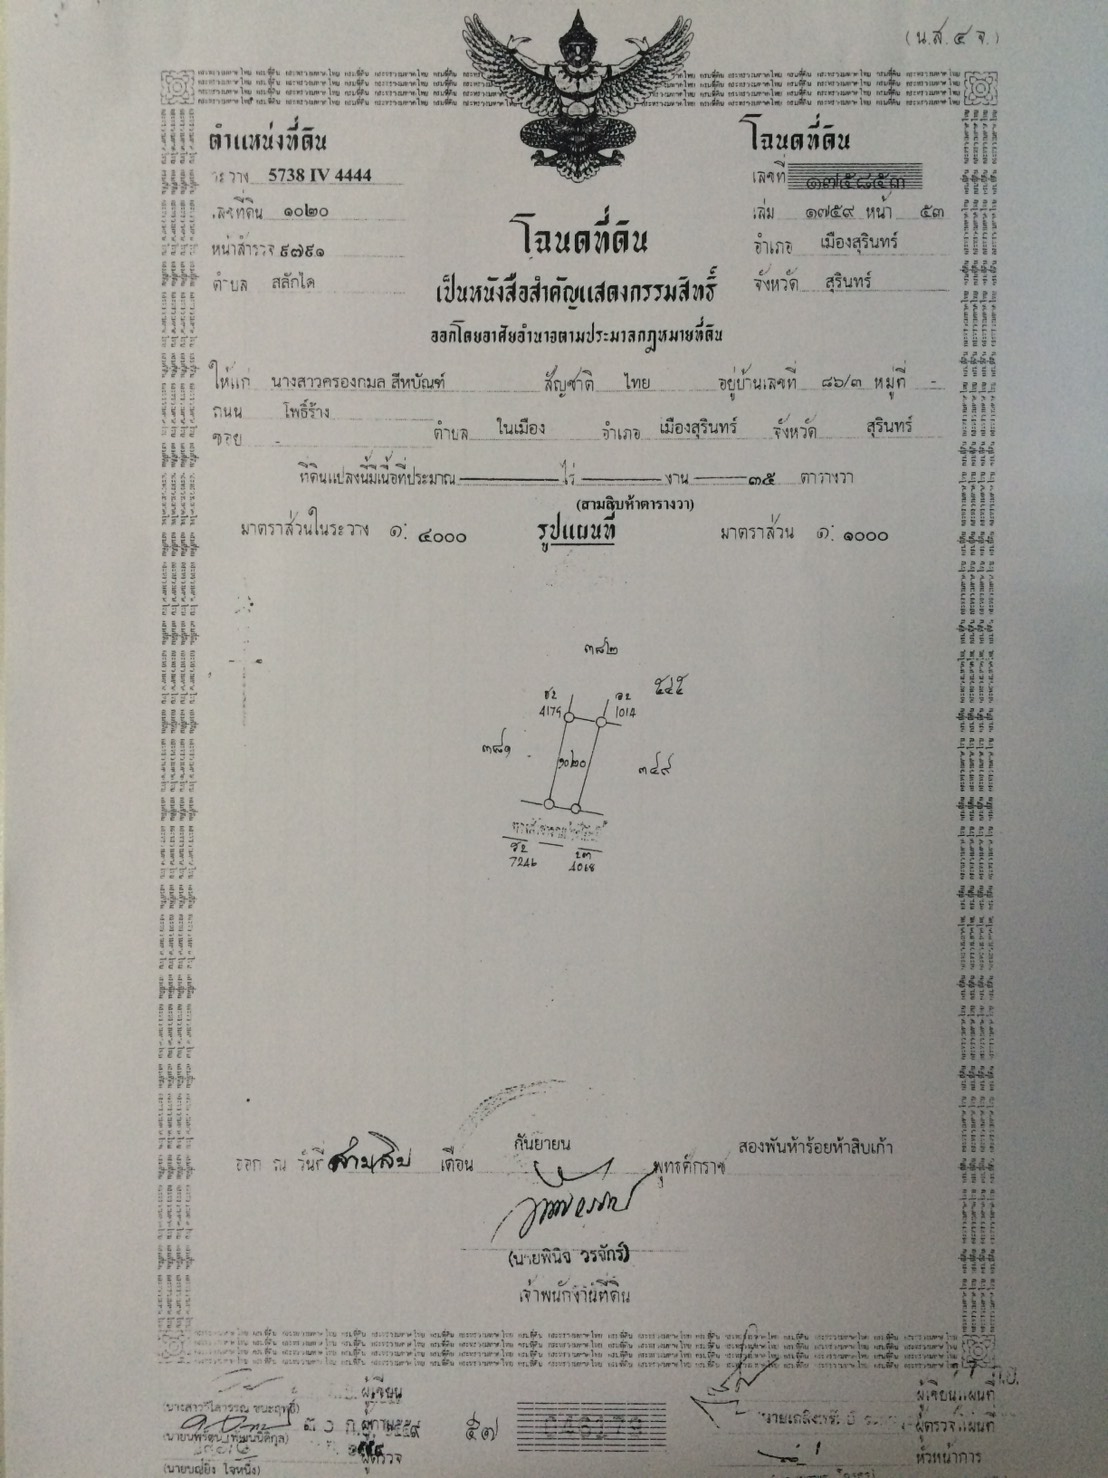 (น.ส. ๔ จ.)
ตำแหน่งที่ดิน
โฉนดที่ดิน
ระวาง 5738 IV 4444
เลขที่ ๑๗๕๘๕๓
เลขที่ดิน ๑๐๒๐
เล่ม ๑๗๕๙ หน้า ๕๓
หน้าสำรวจ ๙๗๙๑
อำเภอ เมืองสุรินทร์
ตำบล สลักได
จังหวัด สุรินทร์
โฉนดที่ดิน
เป็นหนังสือสำคัญแสดงกรรมสิทธิ์
ออกโดยอาศัยอำนาจตามประมวลกฎหมายที่ดิน
ให้แก่ นางสาวครองกมล สีหบัณฑ์ สัญชาติ ไทย อยู่บ้านเลขที่ ๘๖/๓ หมู่ที่ -
ถนน โพธิ์ร้าง
ซอย - ตำบล ในเมือง อำเภอ เมืองสุรินทร์ จังหวัด สุรินทร์
ที่ดินแปลงนี้มีเนื้อที่ประมาณ ไร่ งาน ๓๕ ตารางวา
(สามสิบห้าตารางวา)
มาตราส่วนในระวาง ๑: ๔๐๐๐ รูปแผนที่ มาตราส่วน ๑: ๑๐๐๐
๓๘๒
๕๔๕
1014
๓๘๑
๑๐๒๐
๓๔๙
7246
4068
ออก ณ วันที่ สามสิบ เดือน กันยายน พุทธศักราช สองพันห้าร้อยห้าสิบเก้า
(นายพินิจ วรจักร์)
เจ้าพนักงานที่ดิน
ผู้เขียน
ผู้เขียนแผนที่
ผู้ตรวจแผนที่
๕๗
ผู้ตรวจ
หัวหน้าการ